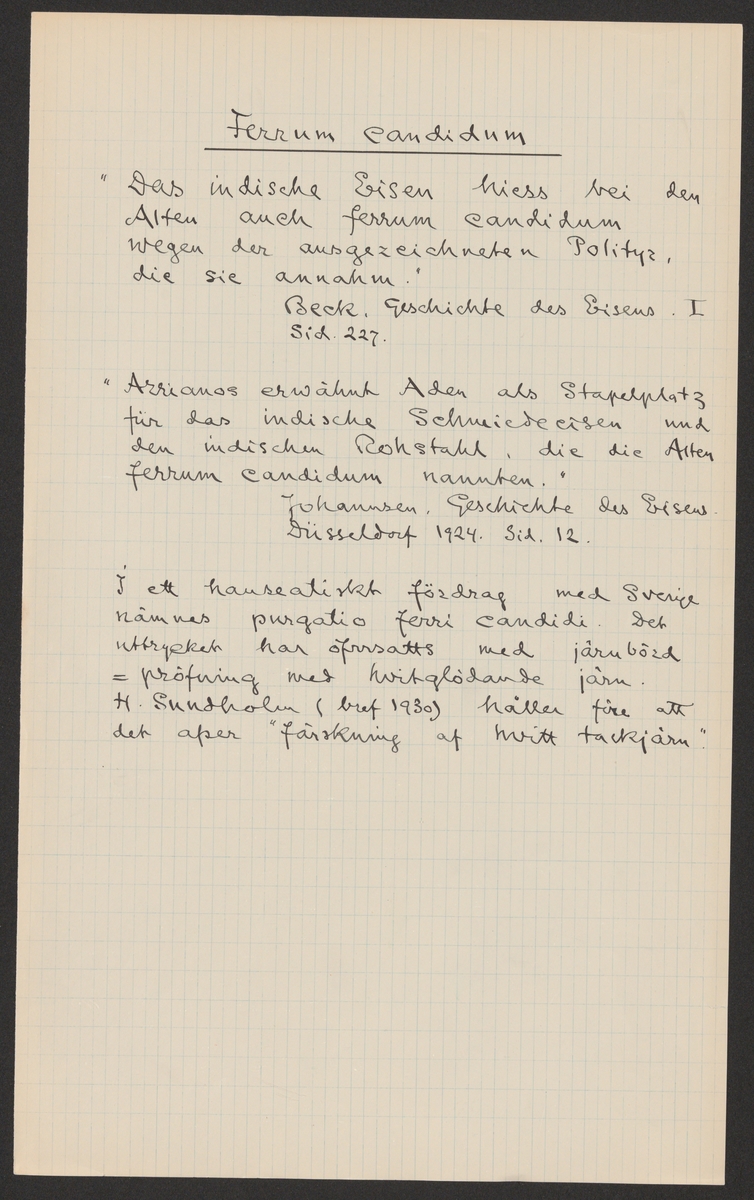 Ferrum candidum
"Das indische Eisen hiess bei den
Alten auch ferrum candidum
wegen der ausgezeichneten Polityr,
die sie annahm."
Beck. Geschichte des Eisens. I
Sid. 227.
"Arrianos erwähnt Aden als Stapelplatz
für das indische Schmiedeeisen und
den indischen Rohstahl, die die Alten
ferrum candidum nannten."
Johannsen. Geschichte des Eisens.
Düsseldorf 1924. Sid. 12.
I ett hanseatiskt fördrag med Sverige
nämnes purgatio ferri candidi. Det
uttrycket har öfversatts med järnbörd
= pröfning med hvitglödande järn.
H. Sundholm (bref 1930) håller före att
det afser "färskning af hvitt tackjärn".